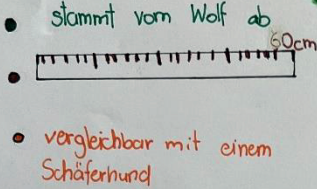 stammt vom Wolf ab
60cm
vergleichbar mit einem
Schäferhund